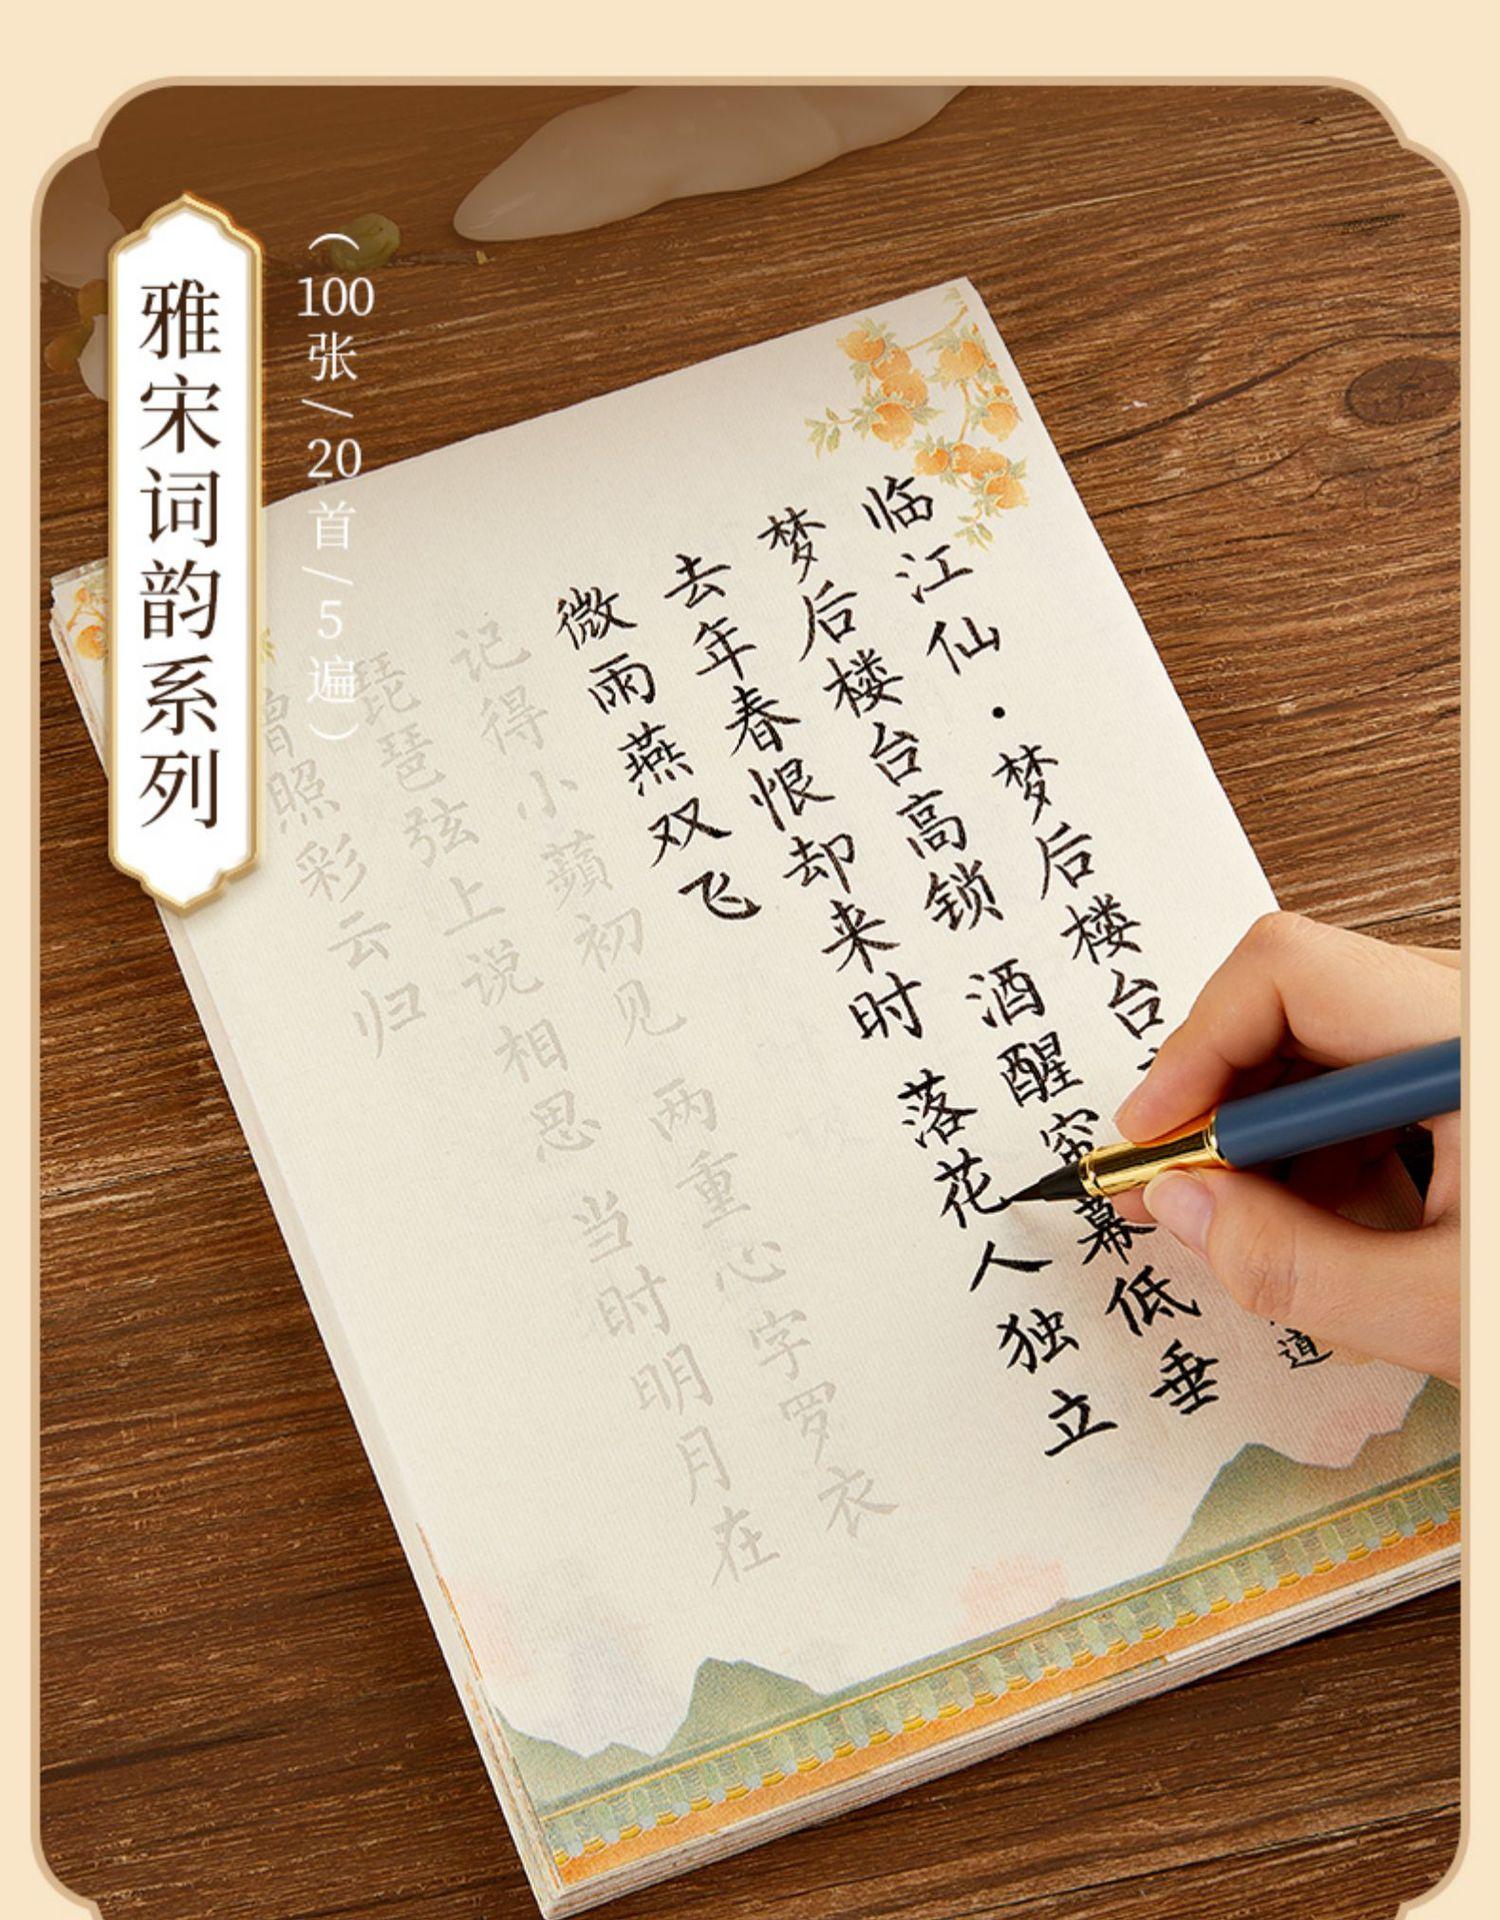 雅宋词韵系列
（100张/20首/5遍）
临江仙·梦后楼台
道
梦后楼台高锁 酒醒帘幕低垂
去年春恨却来时 落花人独立
微雨燕双飞
记得小蘋初见 两重心字罗衣
琵琶弦上说相思 当时明月在
曾照彩云归